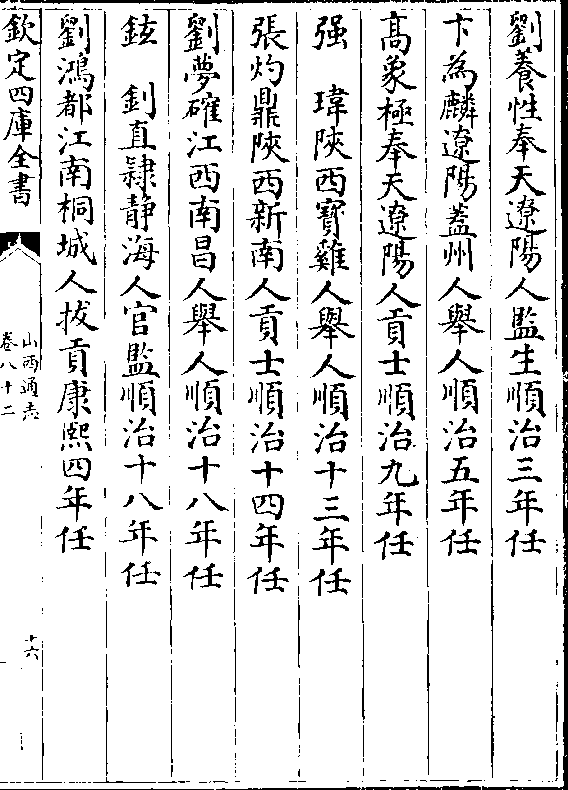 劉養性奉天遼陽人監生順治三年任
卞為麟遼陽蓋州人舉人順治五年任
髙象極奉天遼陽人貢士順治九年任
强　瑋陜西寶雞人舉人順治十三年任
張灼鼎陜西新南人貢士順治十四年任
劉夢確江西南昌人舉人順治十八年任
鉉　釗直隸静海人官監順治十八年任
劉鴻都江南桐城人拔貢康熙四年任
欽定四庫全書
山西通志
卷八十二
十六